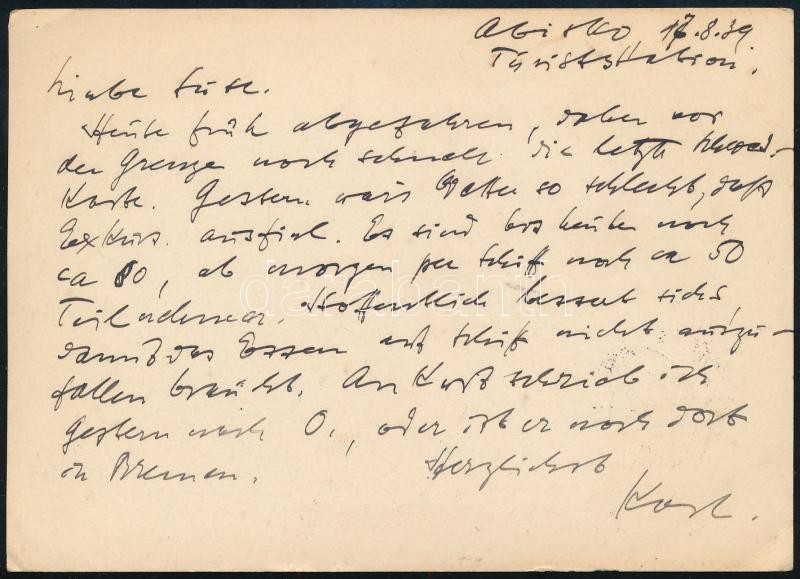 Abisko 17.8.39
Turiststation.
Liebe Suse.
Heute früh abgefahren, daher vor
der Grenze noch schnell die letzte Schwed.-
Karte. Gestern war's Wetter so schlecht, daß
Exkurs. ausfiel. Es sind bis heute noch
ca 80, ab morgen per Schiff noch ca 50
Teilnehmer. Hoffentlich bessert sichs,
damit das Essen auf Schiff nicht auszu-
fallen braucht. An Kurt schrieb ich
gestern nach O., oder ist er noch dort
in Bremen. Herzlichst
Karl.
darabanth